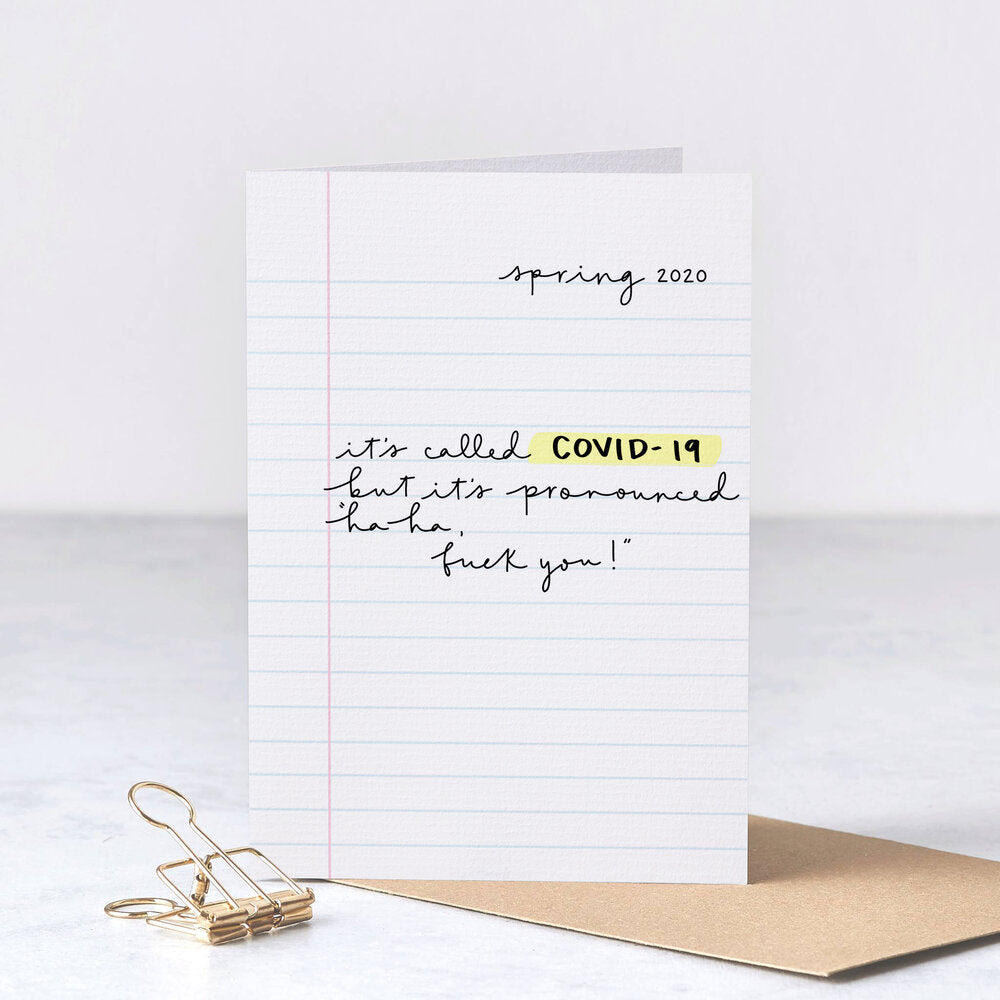 spring 2020
it's called COVID-19
but it's pronounced
"ha-ha,
fuck you!"